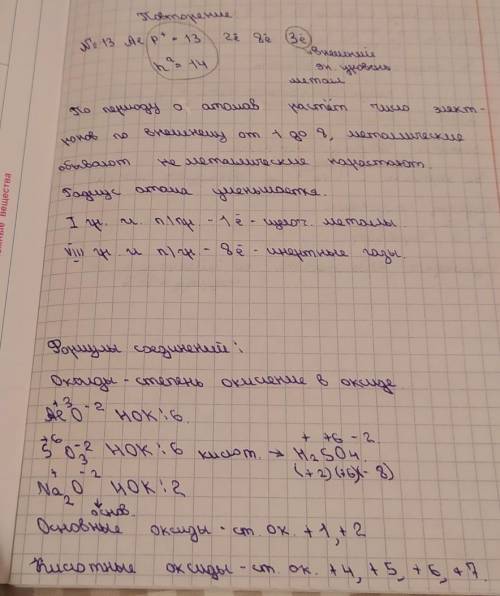 Повторение
№ 13 Al p⁺ = 13 2ē 8ē 3ē
n⁰ = 14 внешний
эн. уровень
металл
По периоду у атомов растёт число элект-
ронов по внешнему от 1 до 8, металлические
убывают неметаллические нарастают.
Радиус атома уменьшается.
I гр. гл. п/гр - 1ē - щелоч. металлы.
VIII гр. гл п/гр - 8ē - инертные газы.
Формулы соединений:
Оксиды - степень окисление в оксиде
Al⁺³O⁻² НОК: 6.
S⁺⁶O₃⁻² НОК: 6 кислот. → H₂⁺S⁺⁶O₄⁻²
(+2)(+6)(-8)
Na₂⁺O⁻² НОК: 2
основ.
Основные оксиды - ст. ок. +1, +2
Кислотные оксиды - ст. ок. +4, +5, +6, +7.
вещества